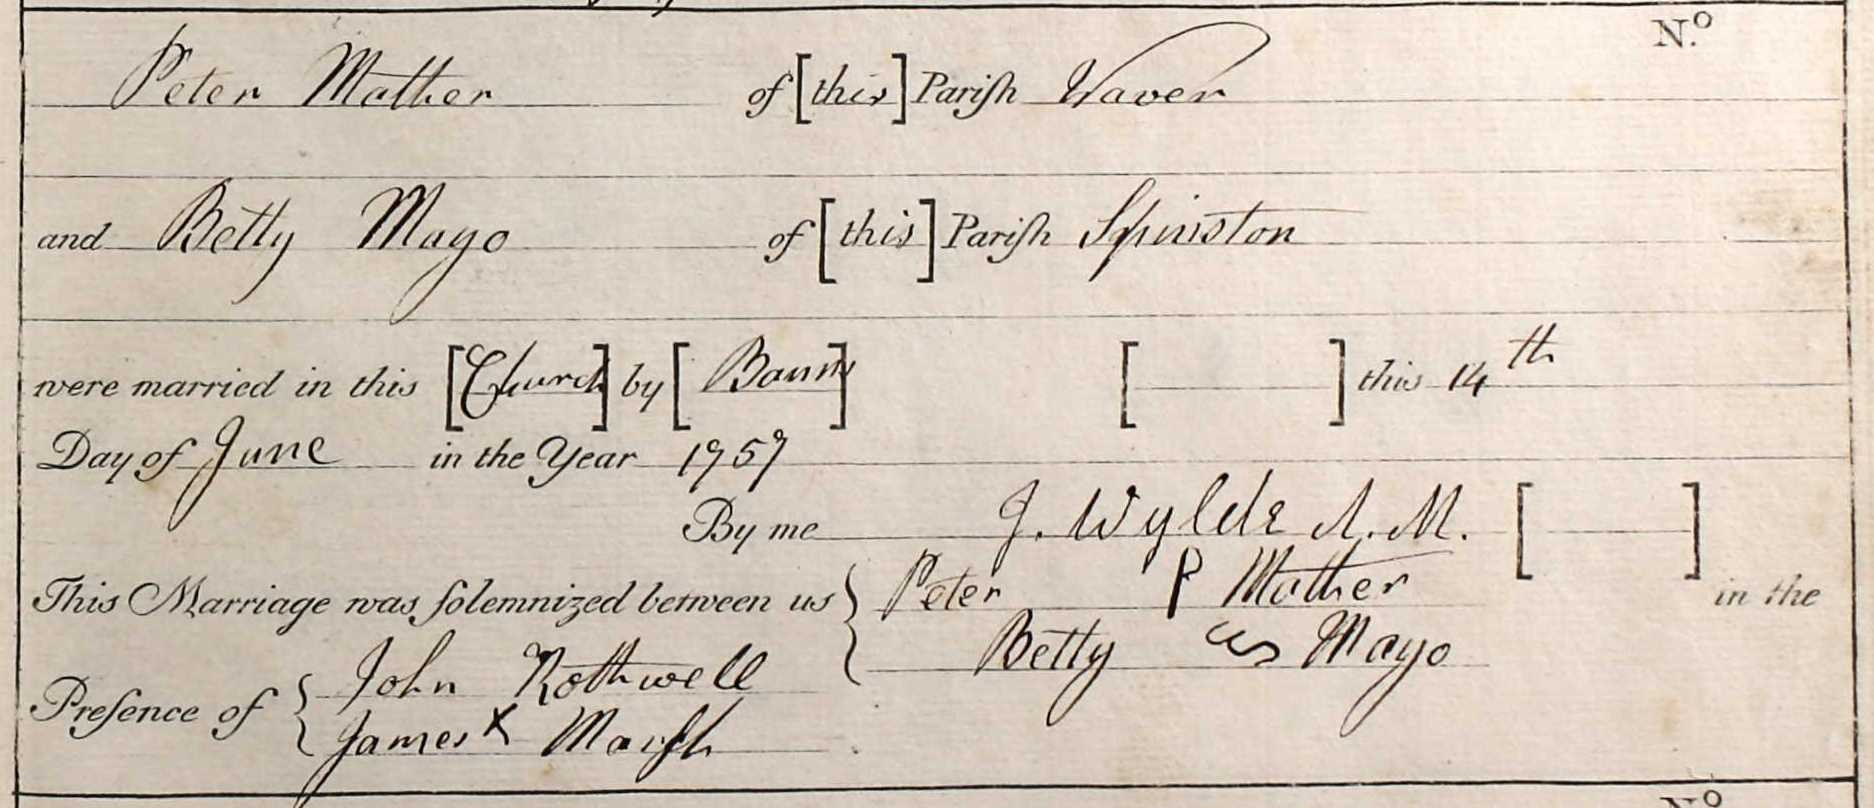 N.º
Peter Mather of [this] Pariſh Waver
and Betty Mayo of [this] Pariſh Spinston
were married in this [Church] by [Banns] [ ] this 14th
Day of June in the Year 1757
By me J. Wylde A.M. [ ]
This Marriage was ſolemnized between us { Peter P Mather in the
Betty Mayo
Preſence of { John Rothwell
James X Marſh
Nº